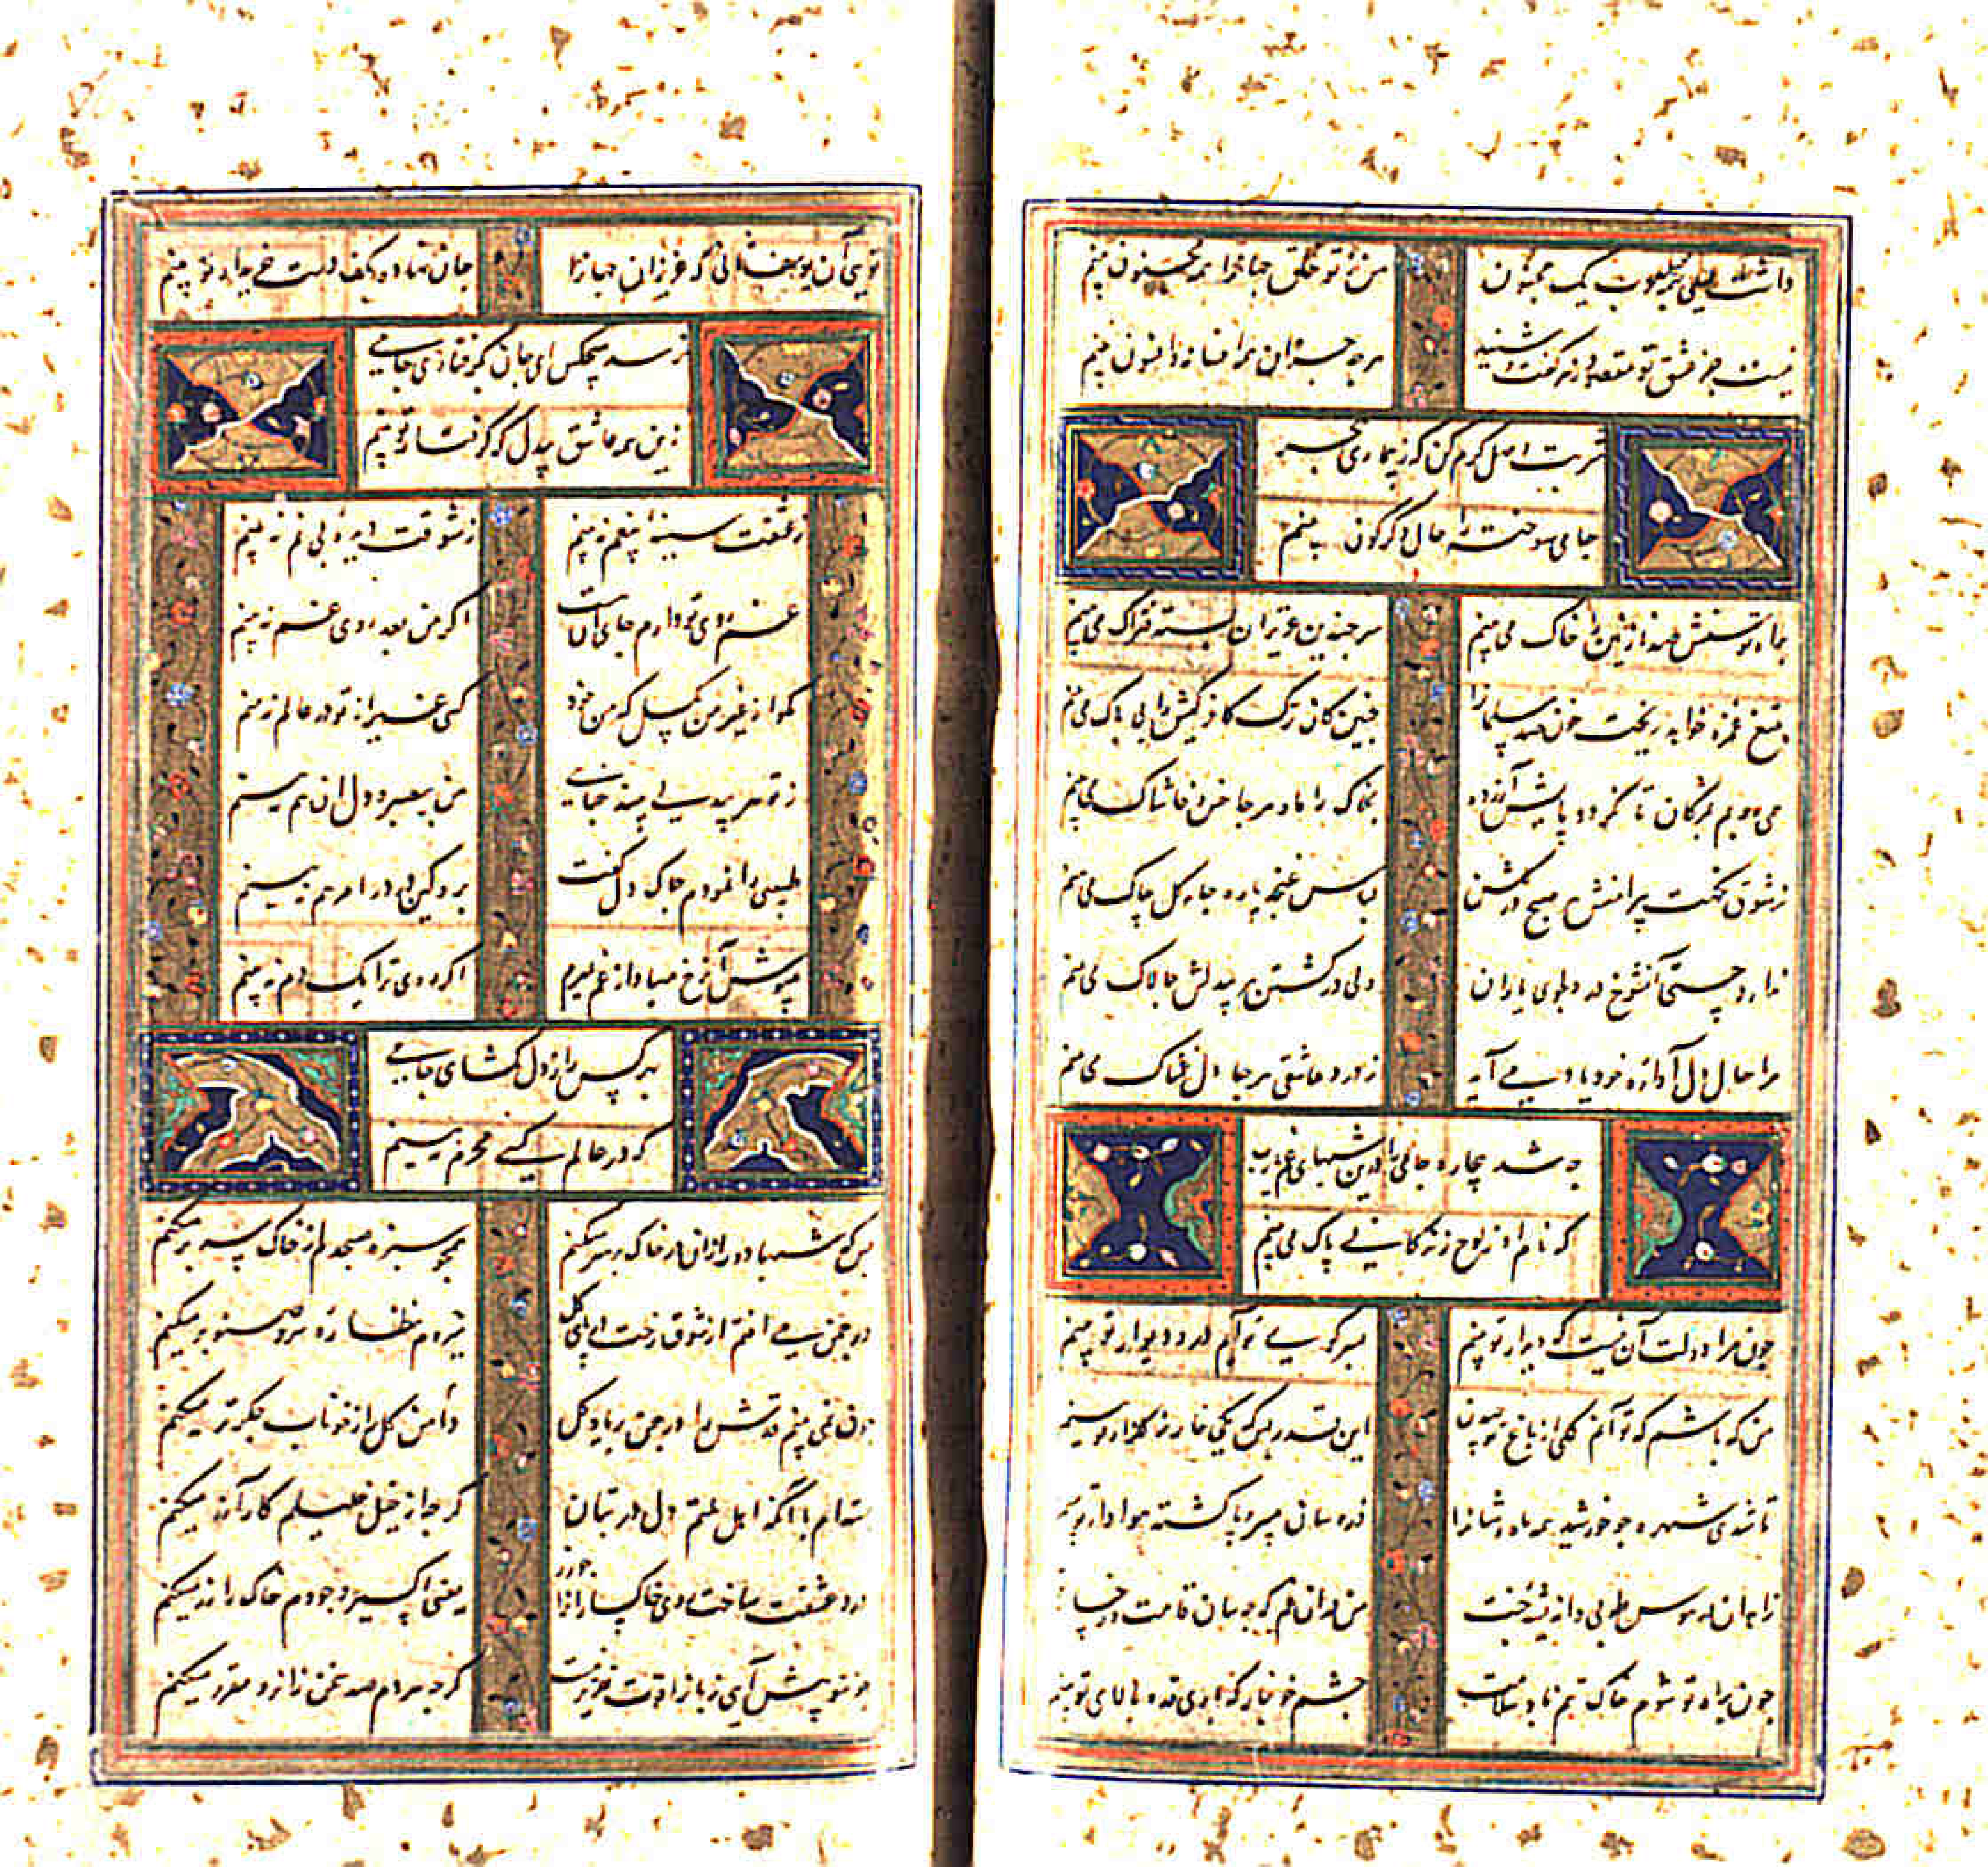 داشت لیلی یک مجنون من ز تو خلق جهان را همه مجنون بینم
نیست جز عشق تو مقصود ز هر گفت و شنید هر چه جز آن همه افسانه و افسون بینم
شربت وصل کرم کن که ز بیماری هجر
جامی سوخته را حال دکرکون بینم
توسنش صد نازنین را خاک می بینم سر چندین عزیزان بسته فتراک می بینم
بتیغ غمزه خواهد ریخت خون صد مسلمانرا چنین کان ترک کافر کیش را بی باک می بینم
می روبم بمژکان تا نکردد پایش آزرده بخاک راه او هر جا خس و خاشاک می بینم
ز شوق نکهت پیراهنش هر صبح در کلشن لباس غنچه پاره جامه کل چاک می بینم
ندارد چستی آنشوخ در دلجوی یاران ولی در کشتن هر بیدلش چالاک می بینم
مرا حال دل آواره خود یاد می آید ز درد عاشقی هر جا دل غمناک می بینم
چه شد بیچاره جامی را درین شبهای غم یارب
که نام او ز لوح زندکانی پاک می بینم
چون مرا دولت آن نیست که دیدار تو بینم بسر کوی تو آیم در و دیوار تو بینم
من که باشم که توانم کلی از باغ تو چیدن این قدر بس که یکی خار ز کلزار تو بینم
تا شدی شهره چو خورشید همه ماه وشانرا ذره سان بی سر و پا کشته هوادار تو بینم
زاهدان در هوس طوبی و اندیشه جنت من در آن غم که چسان قامت و رخسار
چون براه تو شوم خاک تنم باد سلامت چشم خونبار که باری قد و بالای تو بینم
تویی آن یوسف ثانی که عزیزان جهانرا جان نهاده بکف دست خریدار تو بینم
نرسد هیچکس ای جان بکرفتاری جامی
زین همه عاشق بیدل که کرفتار تو بینم
ز عشقت سینه بیغم نه بینم ز شوقت دیده بی نم نه بینم
غم روی تو دارم جای آنست اکر من بعد روی غم نه بینم
مکو از غیر من بکسل که من خود کسی غیر از تو در عالم نه بینم
ز تو هر چه می بیند جهانی من بی صبر و دل آن هم نه بینم
طبیبی را نمودم چاک دل کفت برو کین درد را مرهم نه بینم
مپوش آن رخ مبادا از غم بمیرم اکر روی ترا یک دم نه بینم
بهر کس راز دل مکشای جامی
که در عالم کسی محرم نه بینم
من که شبها دور از آن در خاک بر سر میکنم همچو سبزه صبحدم از خاک سر بر میکنم
در چمن می افتم از شوق رخت در پای کل میروم نظاره سرو و صنوبر میکنم
چون نمی بینم قدش را در چمن بر یاد کل دامن کل را ز خوناب جکر تر میکنم
بسته ام با آنکه اهل ملتم دل در بتان کر چه از خیل خلیلم کار آزر میکنم
درد عشقت ساخت روی خاکسارانرا چو زر یعنی اکسیر وجودم خاک را زر میکنم
کر چه هر دم صد سخن از خود مقرر میکنم